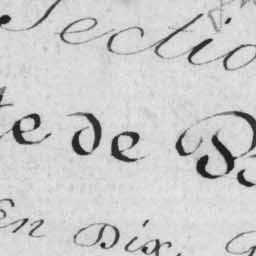 Sectio
te de B
En Dix.